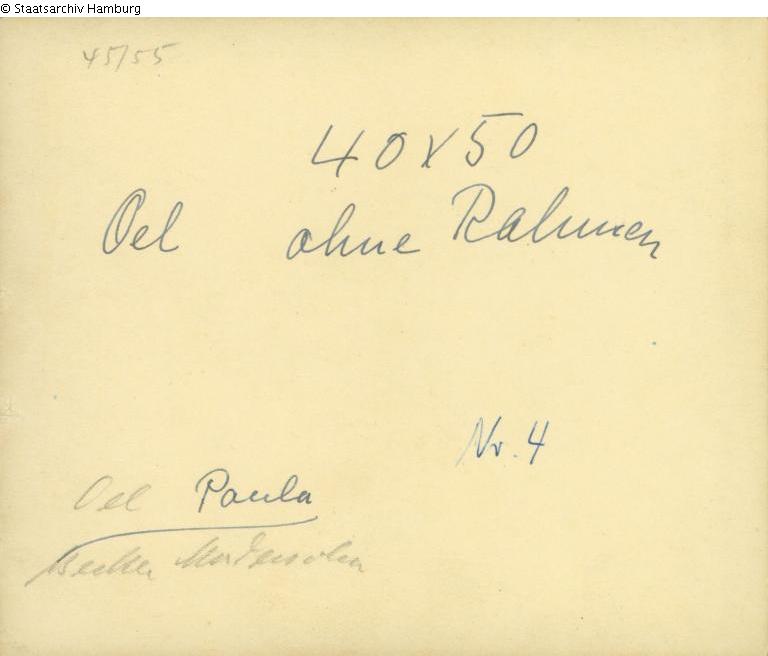 © Staatsarchiv Hamburg
45/55
40x50
Oel ohne Rahmen
Nr. 4
Oel Paula
Becker Modersohn